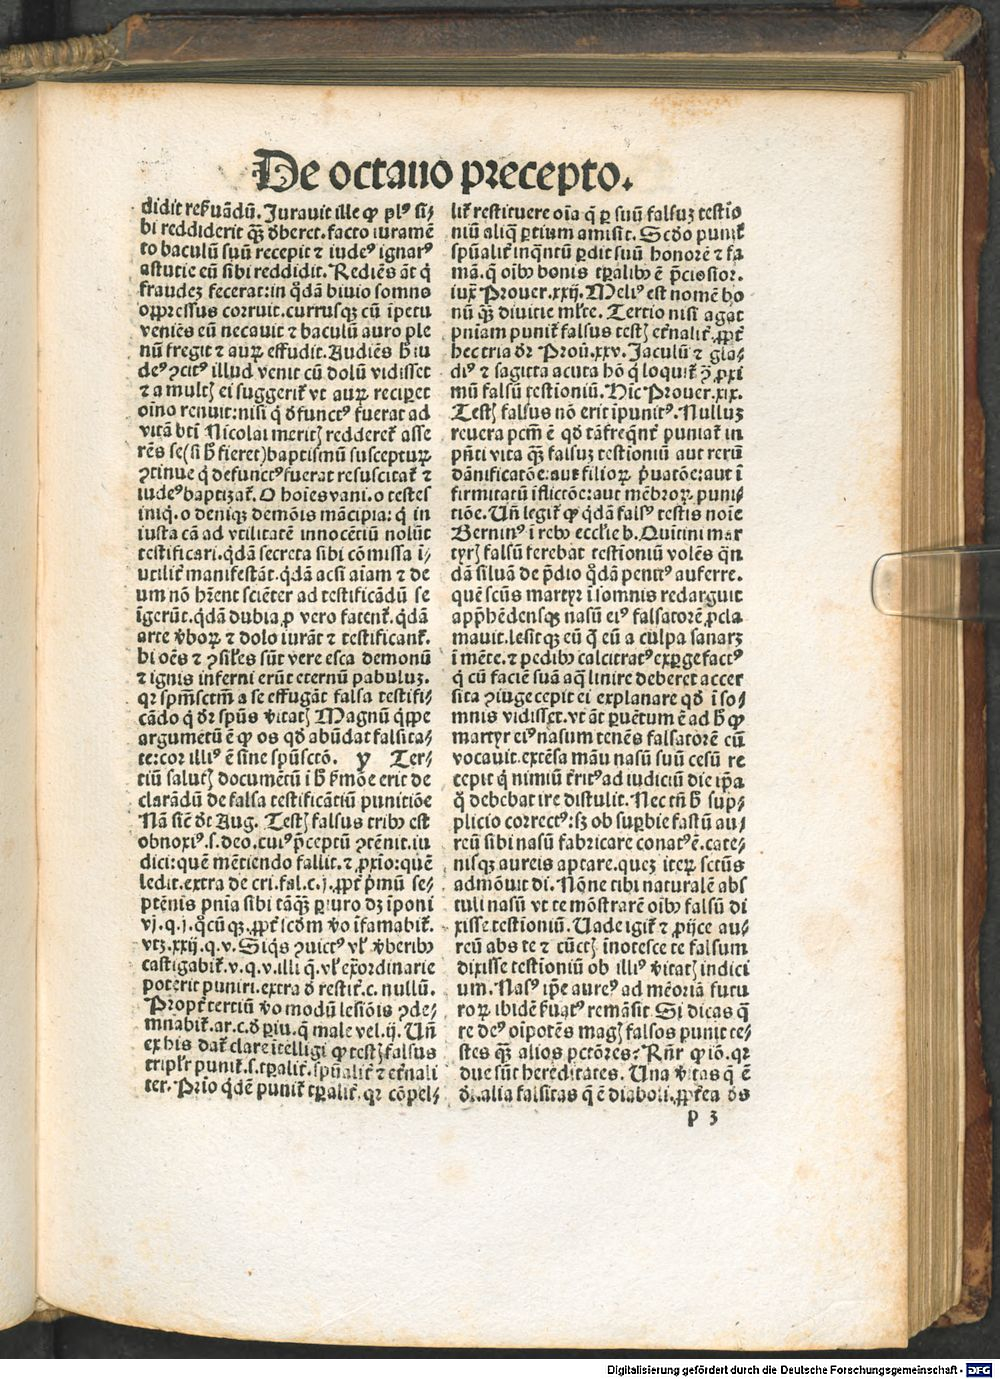 De octauo precepto.
didit reẜuādū. Iurauit ille ꝙ plꝰ si⸗
bi reddiderit qꝫ̄ ꝺberet. facto iuramē
to baculū suū recepit ⁊ iudeꝰ ignarꝰ
astutie eū sibi reddidit. Rediēs āt q̇
fraudeꝫ fecerat: in q̄dā biuio somno
oppressus corruit. currusqꝫ cū īpetu
veniēs eū necauit ⁊ baculū auro ple
nū fregit ⁊ auꝝ effudit. Audiēs ħ iu
deꝰ ꝯcitꝰ illud venit cū dolū vidisset
⁊ a multꝭ ei suggerit̄ vt auꝝ reciperet
oīno renuit: nisi q̇ ꝺfunctꝰ fuerat ad
vitā bt̄i Nicolai meritꝭ redderet̄ asse
rēs se (si ħ fieret) baptismū susceptuꝝ
ꝯtinue q̇ defunctꝰ fuerat resuscitat̄ ⁊
iudeꝰ baptizat̄. O hoīes vani. o testes
iniq̇. o deniqꝫ demōis mācipia: q̇ in
iusta cā ad vtilitatē innocētiū nolūt
testificari. q̇dā secreta sibi cōmissa ī⸗
vtilit̄ manifestāt. q̇dā acsi aīam ⁊ de
um nō hr̄ent sciēter ad testificādū se
īgerūt. q̇dā dubia ꝓ vero fatent̄. q̇dā
arte v̄boꝝ ⁊ dolo iurāt ⁊ testificant̄.
hi oēs ⁊ ꝯsiles sūt vere esca demonū
⁊ ignis inferni erūt eternū pabuluꝫ.
qꝛ spm̄sctm̄ a se effugāt falsa testifi⸗
cādo q̇ ꝺr spūs v̄itatꝭ Magnū q̇ppe
argumētū ē ꝙ os qd̄ abūdat falsita⸗
te: cor illiꝰ ē sine spūsctō. y Ter⸗
tiū salutꝭ documētū ī ħ ẜmōe erit de
clarādū de falsa testificātiū punitiōe
Nā sic̄ ꝺt Aug. Testꝭ falsus tribꝰ est
obnoxiꝰ. s. deo. cuiꝰ p̄ceptū ꝯtēnit. iu
dici: quē mētiendo fallit. ⁊ ꝓxīo: quē
ledit. extra de cri. fal. c. j. ꝓpt̄ p̄mū se⸗
ptēnis pn̄ia sibi tāqꝫ̄ ꝑiuro dꝫ īponi
vj. q. j. q̇cū qꝫ. ꝓpt̄ scd̄m v̄o īfamabit̄.
vtꝫ. xxij. q. v. Siq̇s ꝯuictꝰ vl̄ v̄beribꝰ
castigabit̄. v. q. v. illi q̇. vl̄ ex̄ordinarie
poterit puniri. extra ꝺ restit̄. c. nullū.
Propt̄ tertiū v̄o modū lesiōis ꝯde⸗
mnabit̄. ar. c. ꝺ ꝑiu. q̇ male vel. ij. Un̄
ex his dat̄ clare ītelligi ꝙ testꝭ falsus
triplr̄ punit̄. s. tꝑalit̄. spūalit̄ ⁊ et̄nali
ter. Prīo q̇dē punit̄ tꝑalit̄. qꝛ cōpel⸗
lit̄ restituere oīa q̄ ꝑ suū falsuꝫ testīo
niū aliq̇ ꝑtium amisit. Scd̄o punit̄
spūalit̄ inq̄ntū ꝑdit suū honorē ⁊ fa
mā. q̄ oībꝰ bonis tꝑalibꝰ ē p̄ciosior.
iuxͭ Prouer. xxij. Meliꝰ est nomē bo
nū qꝫ̄ diuitie ml̄te. Tertio nisi agat
pniam punit̄ falsus testꝭ et̄nalit̄. ꝓpt̄
hec tria ꝺr Prou̇. xxv. Iaculū ⁊ gla⸗
diꝰ ⁊ sagitta acuta hō q̇ loquit̄ ꝯ̄ ꝓxi
mū falsū testioniū. Hic Prouer. xix.
Testꝭ falsus nō erit īpunitꝰ. Nulluꝫ
reuera pcm̄ ē qd̄ tā freq̄nt̄ puniat̄ in
pn̄ti vita qꝫ̄ falsuꝫ testioniū aut rerū
dānificatōe: aut filioꝝ p̄uatōe: aut ī
firmitatū īflictōe: aut mēbroꝝ puni⸗
tiōe. Un̄ legit̄ ꝙ q̇dā falsꝰ testis noīe
Berninꝰ ī rebꝰ eccl̄ie b. Quitini mar
tyrꝭ falsū ferebat testioniū volēs q̄n
dā siluā de p̄dio q̇dā penitꝰ auferre.
quē scūs martyr ī somnis redarguit
app̄hēdensqꝫ nasū eiꝰ falsatorē ꝓcla
mauit. lesitqꝫ eū q̇ cū a culpa sanarꝫ
ī mēte. ⁊ pedibꝰ calcitratꝰ exꝑgefactꝰ
q̇ cū faciē suā aq̄ linire deberet accer
sita ꝯiuge cepit ei explanare qd̄ ī so⸗
mnis vidisset. vt āt ꝑuētum ē ad ħ ꝙ
martyr eiꝰ nasum tenēs falsatorē cū
vocauit. extēsa māu nasū suū cesū re
cepit q̇ nimiū t̄ritꝰ ad iudiciū die ip̄a
q̄ debebat ire distulit. Nec tn̄ ħ sup⸗
plicio correctꝰ: sꝫ ob suꝑbie fastū au⸗
reū sibi nasū fabricare conatꝰ ē. cate⸗
nisqꝫ aureis aptare. queꝫ iteꝝ sctūs
admōuit dī. Nōne tibi naturalē abs
tuli nasū vt te mōstrarē oībꝰ falsū di
xisse testioniū. Uade igit̄ ⁊ ꝓijce au⸗
reū abs te ⁊ cūctꝭ inotesce te falsum
dixisse testioniū ob illiꝰ v̄itatꝭ indici
um. Nasꝰ ip̄e aureꝰ ad mēoriā futu
roꝝ ibidē ẜuatꝰ remāsit. Si dicas q̄
re deꝰ oīpotēs magꝭ falsos punit te⸗
stes qꝫ̄ alios pctōres? Rn̄r ꝙ iō. qꝛ
due sūt hereditates. Una v̄itas q̄ ē
dī. alia falsitas q̄ ē diaboli. ꝓpt̄ea ꝺs
p 3
Digitalisierung gefördert durch die Deutsche Forschungsgemeinschaft - DFG